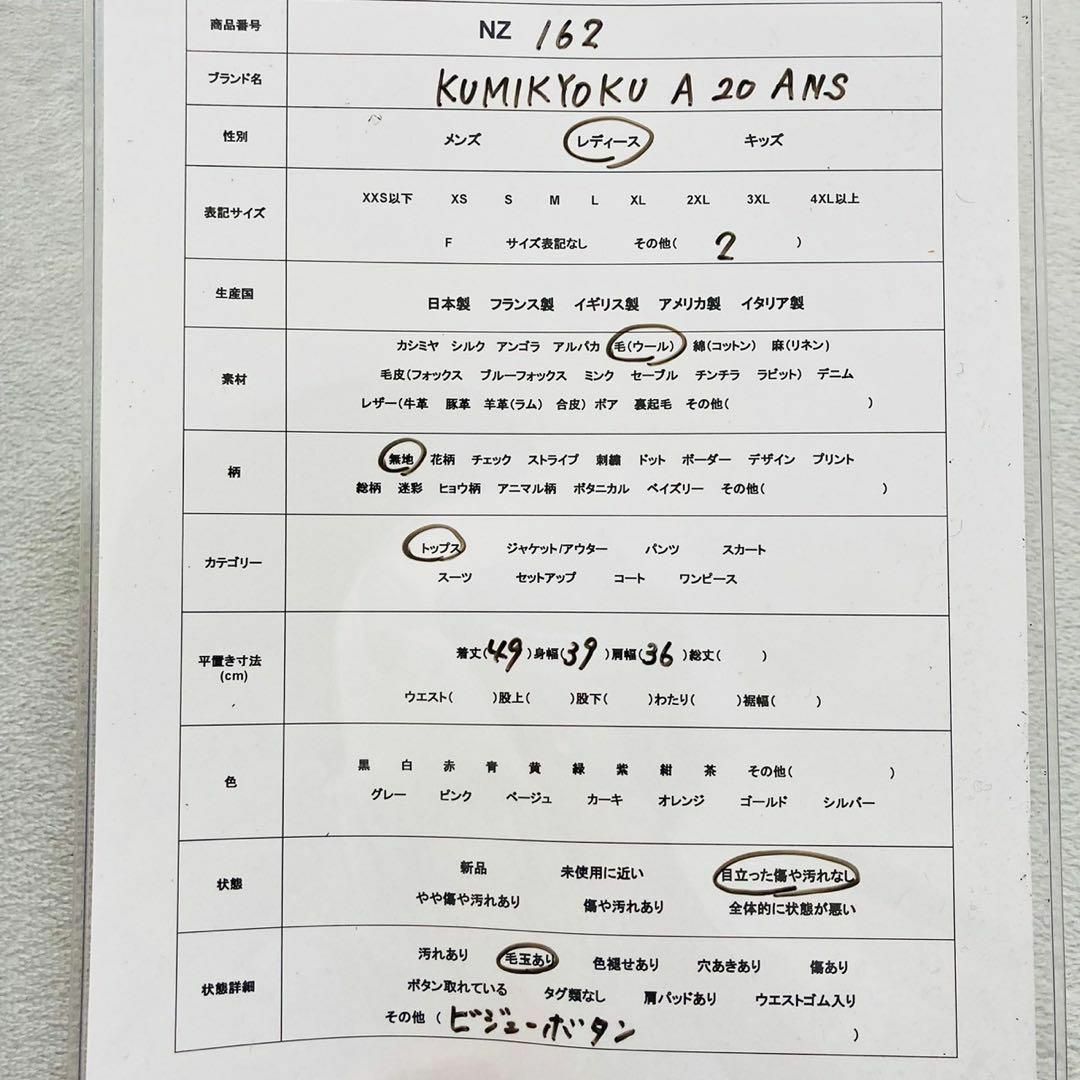 商品番号 NZ 162
ブランド名 KUMIKYOKU A 20 ANS
性別 メンズ レディース キッズ
XXS以下 XS S M L XL 2XL 3XL 4XL以上
表記サイズ
F サイズ表記なし その他( 2 )
生産国 日本製 フランス製 イギリス製 アメリカ製 イタリア製
カシミヤ シルク アンゴラ アルパカ 毛(ウール) 綿(コットン) 麻(リネン)
素材 毛皮(フォックス ブルーフォックス ミンク セーブル チンチラ ラビット) デニム
レザー(牛革 豚革 羊革(ラム) 合皮) ボア 裏起毛 その他( )
柄 無地 花柄 チェック ストライプ 刺繍 ドット ボーダー デザイン プリント
総柄 迷彩 ヒョウ柄 アニマル柄 ボタニカル ペイズリー その他( )
カテゴリー トップス ジャケット/アウター パンツ スカート
スーツ セットアップ コート ワンピース
平置き寸法 着丈(49)身幅(39)肩幅(36)総丈( )
(cm)
ウエスト( )股上( )股下( )わたり( )裾幅( )
色 黒 白 赤 青 黄 緑 紫 紺 茶 その他( )
グレー ピンク ベージュ カーキ オレンジ ゴールド シルバー
状態 新品 未使用に近い 目立った傷や汚れなし
やや傷や汚れあり 傷や汚れあり 全体的に状態が悪い
汚れあり 毛玉あり 色褪せあり 穴あきあり 傷あり
状態詳細 ボタン取れている タグ類なし 肩パッドあり ウエストゴム入り
その他 ( ビジューボタン )